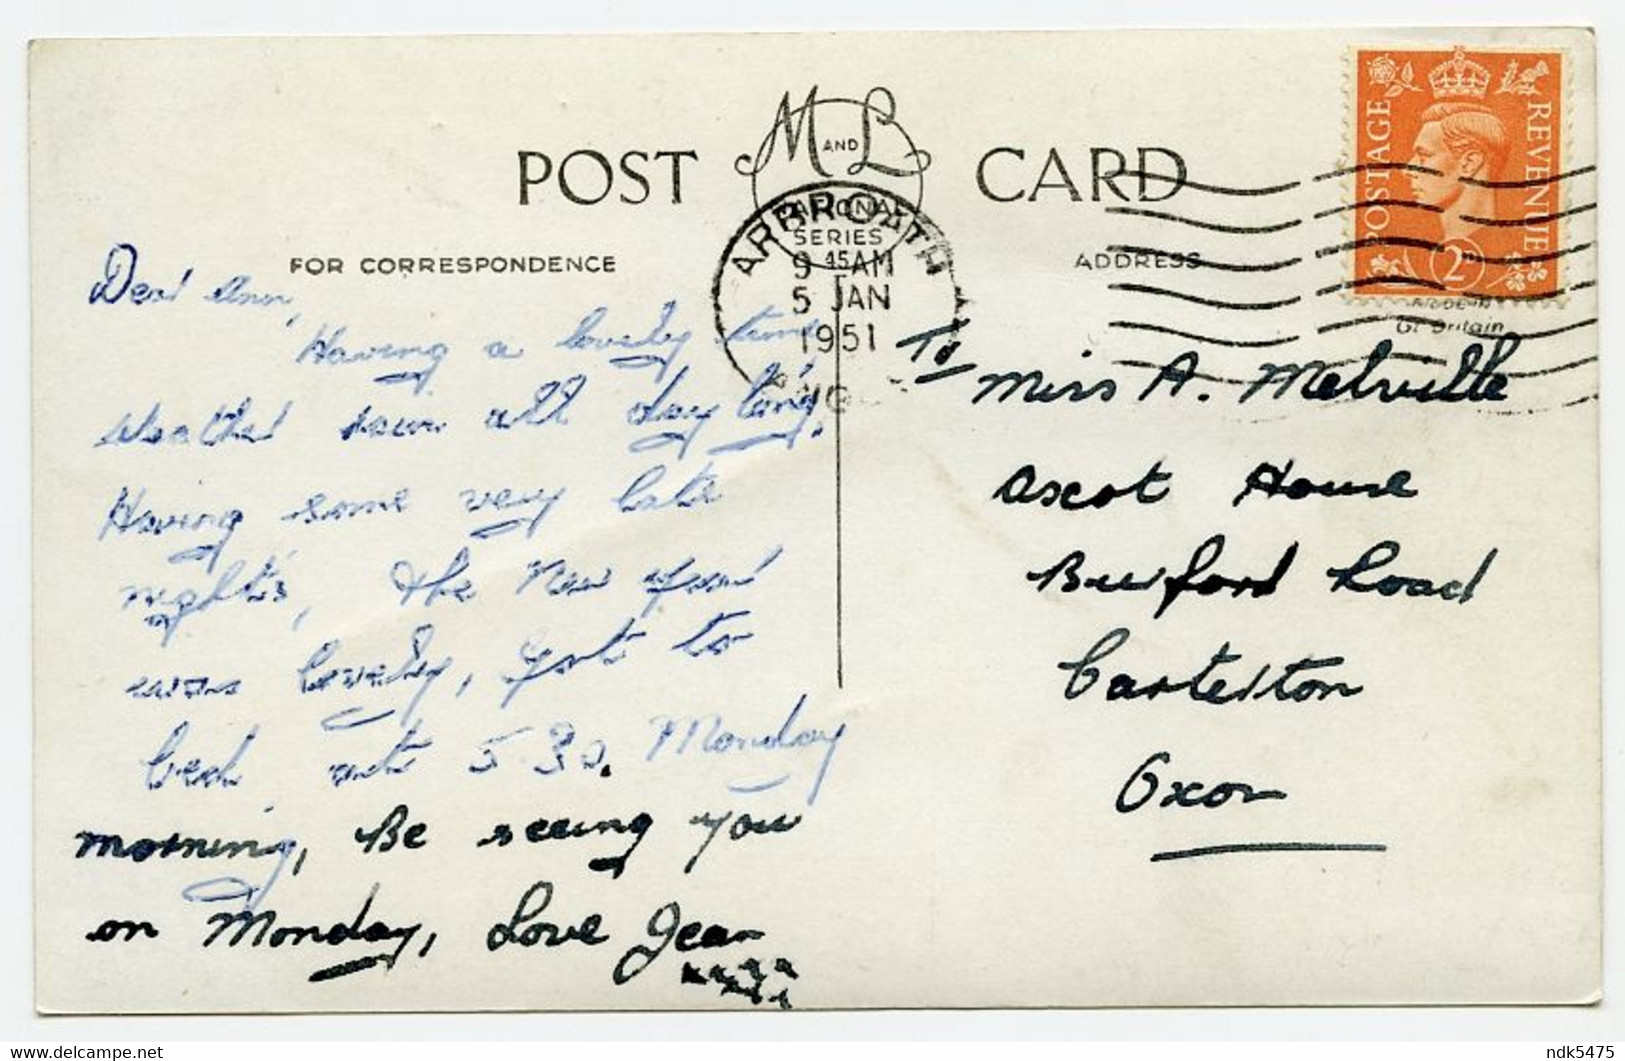 POST CARD
M AND L
NATIONAL
SERIES
FOR CORRESPONDENCE
ADDRESS
ARBROATH
9 45 AM
5 JAN
1951
ANGUS
POSTAGE REVENUE
2D
MADE IN
Gt Britain
Dear Ann,
Having a lovely time
weather sun all day long,
Having some very late
night's, the New year
was lovely, got to
bed at 5.30. Monday
morning, Be seeing you
on Monday, Love Jean
xxxx
xxx
To
Miss A. Melville
Ascot House
Burford Road
Carterton
Oxon
ndk5475